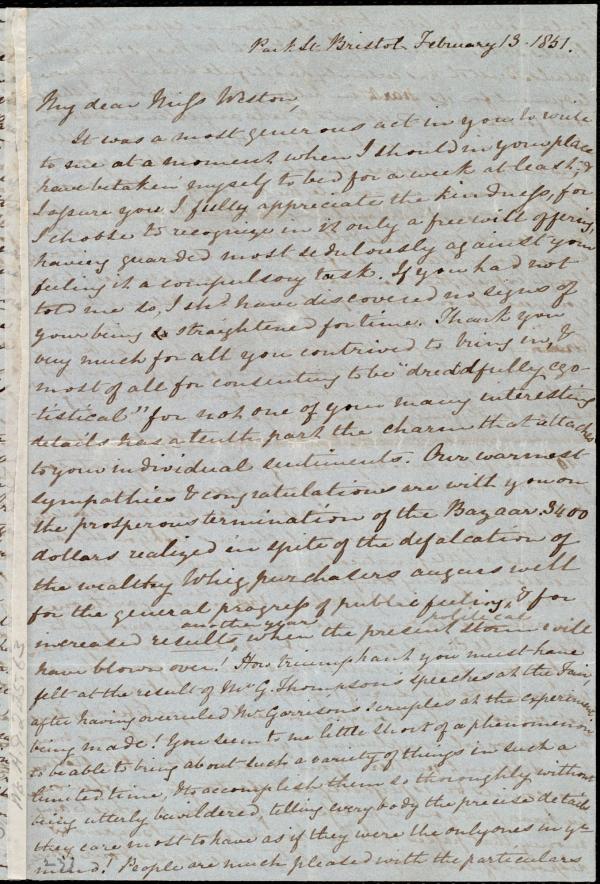 Park St. Bristol February 13. 1851.
My dear Miss Weston,
It was a most generous act in you to write
to me at a moment when I should in your place
have betaken myself to bed for a week at least; &
I assure you I fully appreciate the kindness, for
I choose to recognise in it only a free will offering,
having guarded most sedulously against your
feeling it a compulsory task. If you had not
told me so, I shd have discovered no signs of
your being straightened for time. Thank you
very much for all you contrived to bring in, &
most of all for consenting to be "dreadfully ego-
tistical" for not one of your many interesting
details has a tenth part the charm that attaches
to your individual sentiments. Our warmest
sympathies & congratulations are with you on
the prosperous termination of the Bazaar. 3400
dollars realized in spite of the defalcation of
the wealthy Whig purchasers augurs well
for the general progress of public feeling, & for
increased results another year when the present political storm will
have blown over! How triumphant you must have
felt at the result of Mr G. Thompson's speeches at the Fair,
after having overruled Mr Garrison's scruples at the experiment
being made! You seem to me little short of a phenomenon
to be able to bring about such a variety of things in such a
limited time, & to accomplish them so thoroughly without
being utterly bewildered, telling everybody the precise details
they care most to have as if they were the only ones in yr
mind! People are much pleased with the particulars